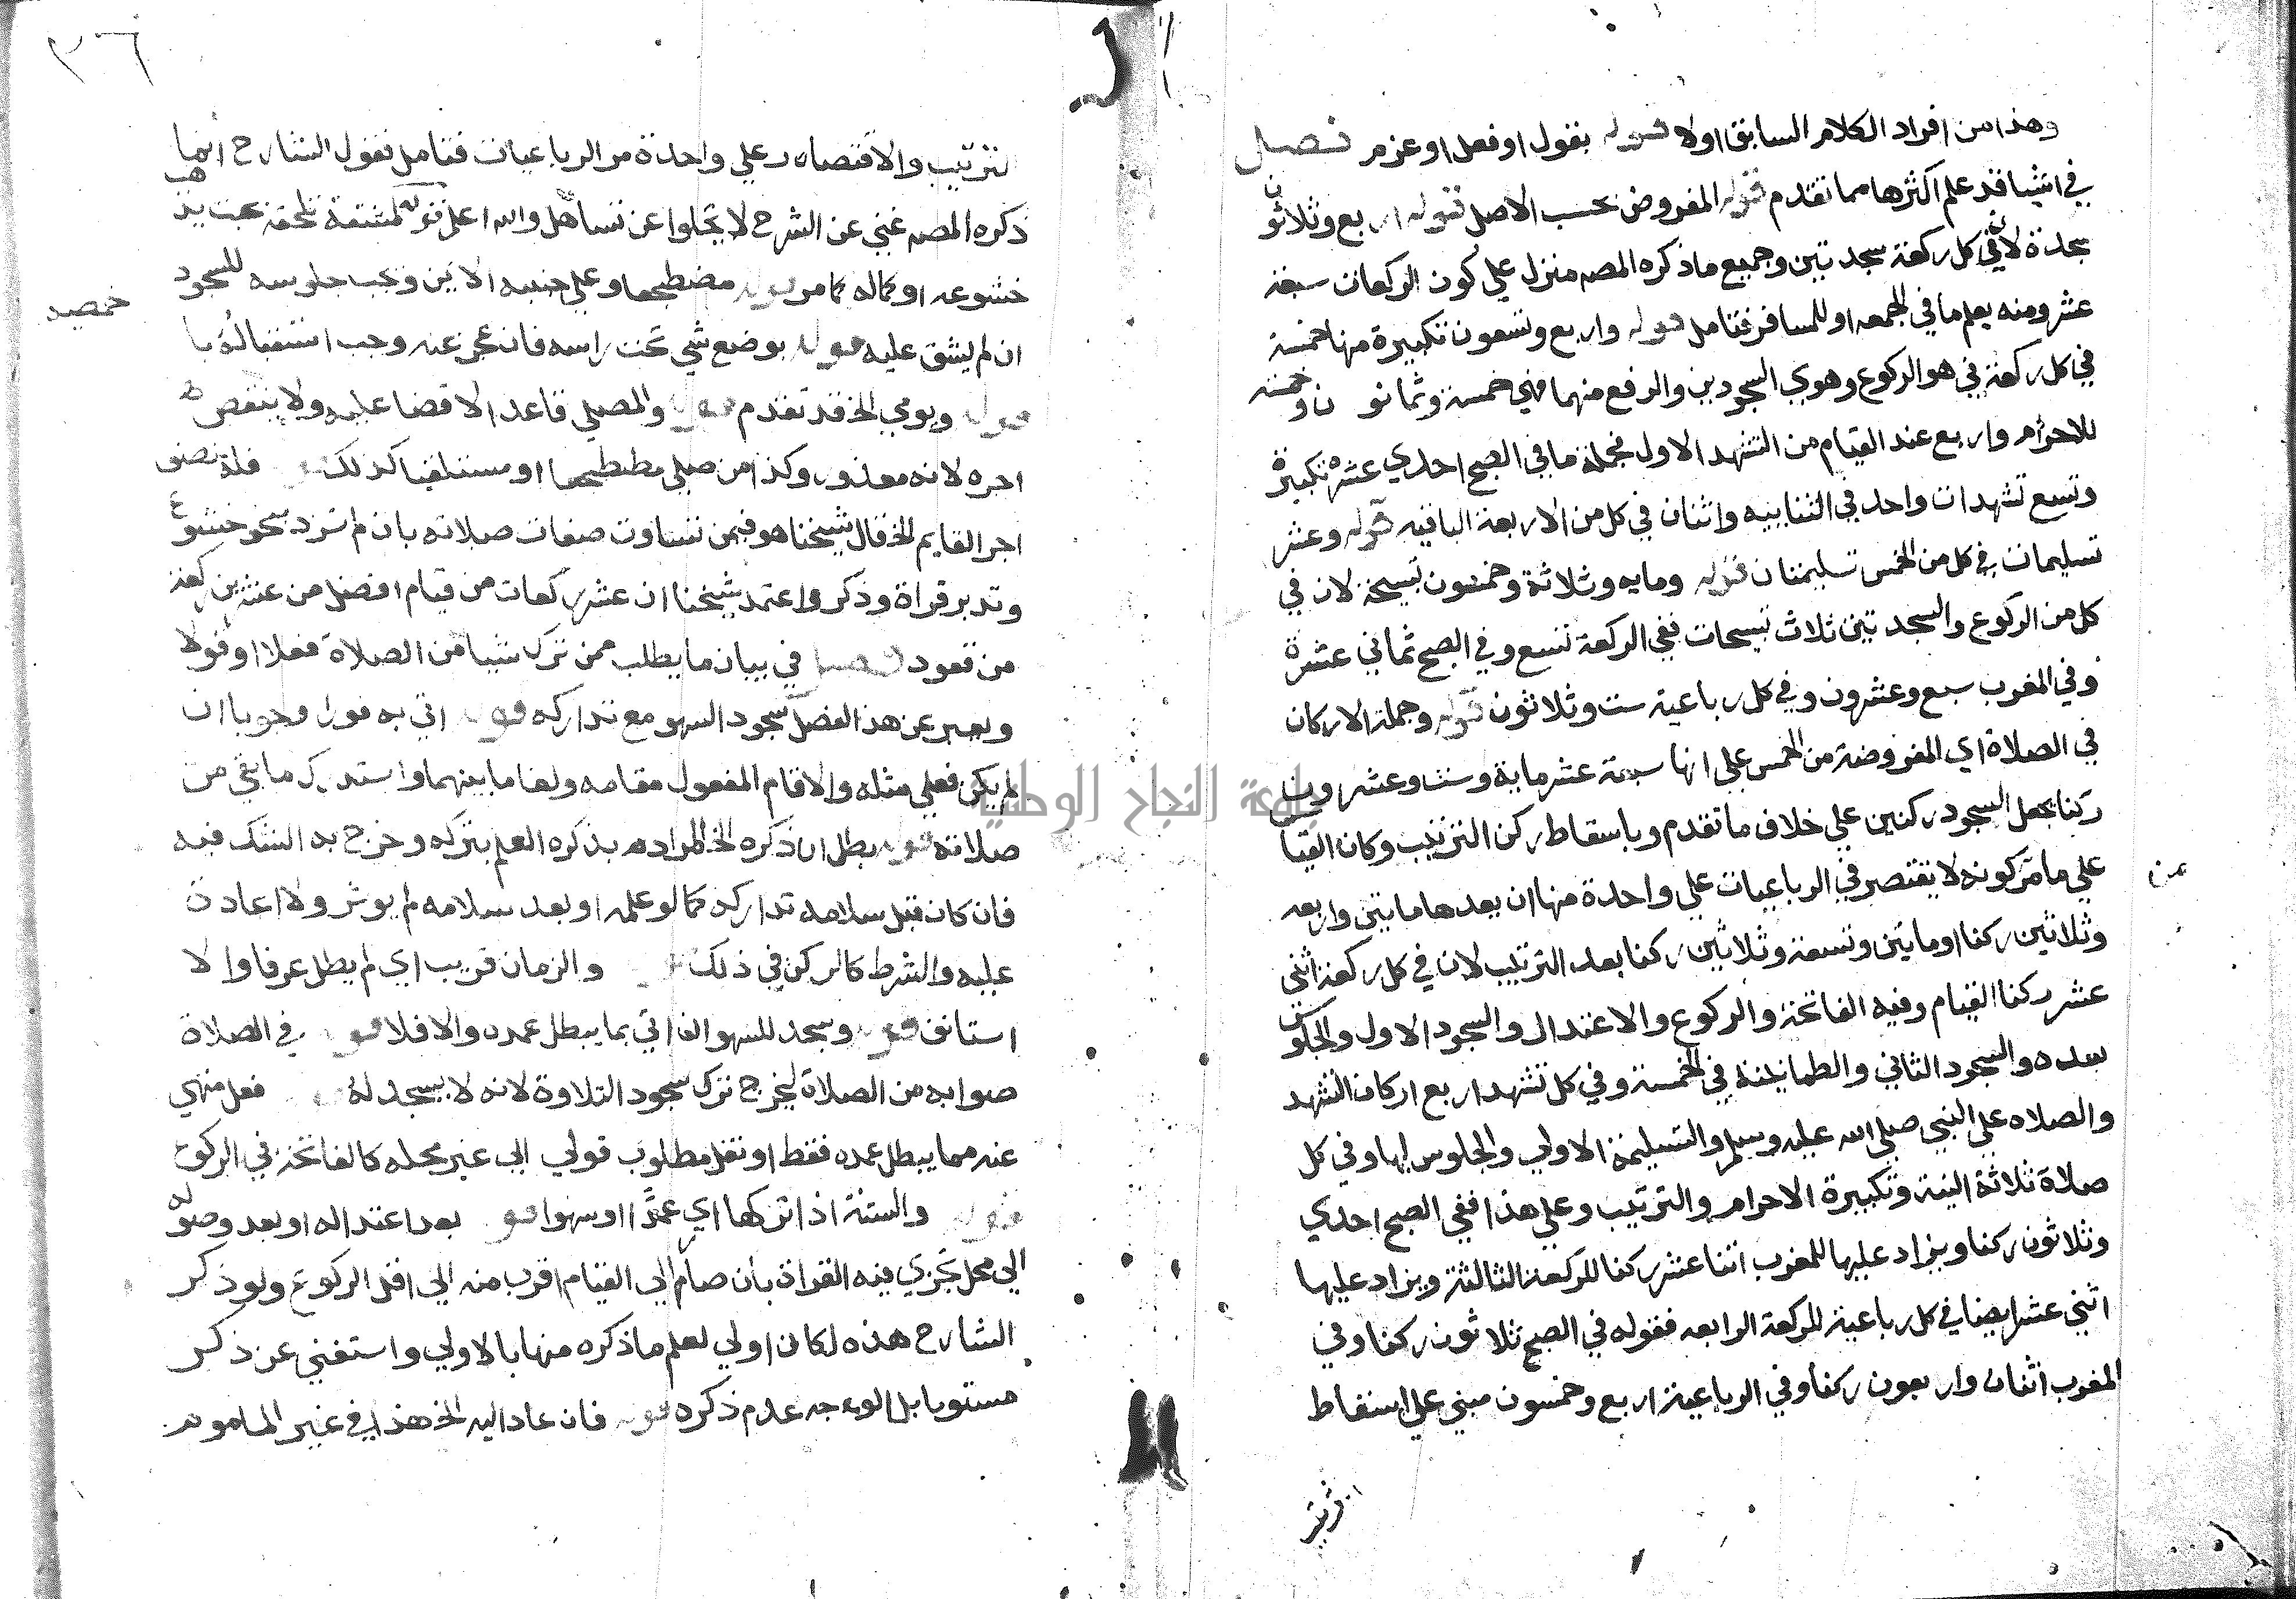 وهذا من افراد الكلام السابق اولا قوله بقول او فعل او عزم فصل
في اشيا قد علم اكثرها مما تقدم قوله المفروض بحسب الاصل قوله اربع وثلاثون
سجدة لان في كل ركعة سجدتين وجميع ما ذكره المصم منزل علي كون الركعات سبعة
عشر ومنه يعلم ما في الجمعه او للمسافر فتامل قوله واربع وتسعون تكبيرة منها خمسة
في كل ركعة في هو الركوع وهوي السجودين والرفع منهما فهي خمسة وثمانون وخمسة
للاحرام واربع عند القيام من التشهد الاول فجملة ما في الصبح احدي عشره تكبيرة
وتسع تشهدات واحد في الثنابيه واثنان في كل من الاربعة الباقيه قوله وعشر
تسليمات في كل من الخمس تسليمتان قوله ومايه وثلاثة وخمسون تسبيحة لان في
كل من الركوع والسجدتين ثلاث تسبيحات ففي الركعة تسع وفي الصبح ثماني عشرة
وفي المغرب سبع وعشرون وفي كل رباعية ست وثلاثون قوله وجملة الاركان
في الصلاة اي المفروضة من الخمس علي انها سبعة عشر ماية وست وعشرون
ركنا بجعل السجود ركنين علي خلاف ما تقدم وباسقاط ركن الترتيب وكان القيا
علي ما مر كونه لا يقتصر في الرباعيات علي واحدة منها ان يعدها مايتين واربعه
عن
وثلاثين ركنا او مايتين وتسعة وثلاثين ركنا بعد الترتيب لان في كل ركعة اثني
عشر ركنا القيام وفيه الفاتحة والركوع والاعتدال والسجود الاول والجلوس
بعده والسجود الثاني والطمانينة في الخمسة وفي كل تشهد اربع اركان التشهد
والصلاه علي النبي صلي الله عليه وسلم والتسليمة الاولي والجلوس لها وفي كل
صلاة ثلاثة النية وتكبيرة الاحرام والترتيب وعلي هذا ففي الصبح احدي
وثلاثون ركنا ويزاد عليها للمغرب اثنا عشر ركنا للركعة الثالثة ويزاد عليها
اثني عشر ايضا في كل رباعية للركعة الرابعه فقوله في الصبح ثلاثون ركنا وفي
المغرب اثنان واربعون ركنا وفي الرباعية اربع وخمسون مبني علي اسقاط
الترتيب
٣٦
الترتيب والاقتصار علي واحدة من الرباعيات فتامل نقول الشارح انما
ذكره المصم غني عن الشرح لا يخلوا عن تساهل والله اعلم قوله لمشقة تلحقه بحيث يذهب
خشوعه او كماله كما مر قوله مضطجعا وعلي جنبه الايمن ويجب جلوسه للسجود
ان لم يشق عليه قوله بوضع شي تحت راسه فان عجز عنه وجب استقباله با
قوله ويومي الخ قد تقدم قوله والمصلي قاعدا لا قضا عليه ولا ينقص
اجره لانه معذور وكذا من صلي مضطجعا او مستلقيا كذلك قوله فله نصف
اجر القايم الخ قال شيخنا هو فيمن تساوت صفات صلاته بان لم تزد بنحو خشوع
وتدبر قراة وذكر واعتمد شيخنا ان عشر ركعات من قيام افضل من عشرين ركعة
من قعود فصل في بيان ما يطلب ممن ترك شيا من الصلاة فعلا او قولا
ويعبر عن هذا الفصل سجود السهو مع تداركه قوله اتي به فورا وجوبا ان
لم يكن فعلي مثله والا قام المفعول مقامه ولغا ما بينهما واستدرك ما بقي من
صلاته قوله بطل ان ذكره الخ المراد بذكره العلم بتركه وخرج به الشك فيه
فان كان قبل سلامه تداركه كما لو علمه او بعد سلامه لم يوثر ولا اعادة
عليه والشرط كالركن في ذلك قوله والزمان قريب اي لم يطل عرفا والا
استانف قوله وسجد للسهو ان اتي بما يبطل عمده والا فلا قوله في الصلاة
صوابه من الصلاة ليخرج ترك سجود التلاوة لانه لا يسجد له قوله فعل منهي
عنه مما يبطل عمده فقط او نقل مطلوب قولي الي غير محله كالفاتحة في الركوع
قوله والسنة اذا تركها اي عمدا او سهوا قوله بعد اعتداله او بعد وصوله
الي محل تجزي فيه القراة بان صار الي القيام اقرب منه الي اقل الركوع ولو ذكر
الشارح هذه لكان اولي لعلم ما ذكره منها بالاولي واستغني عن ذكر
مستويا بل الوجه عدم ذكره قوله فان عاد اليه الخ هذا في غير الماموم
جامعة النجاح الوطنية